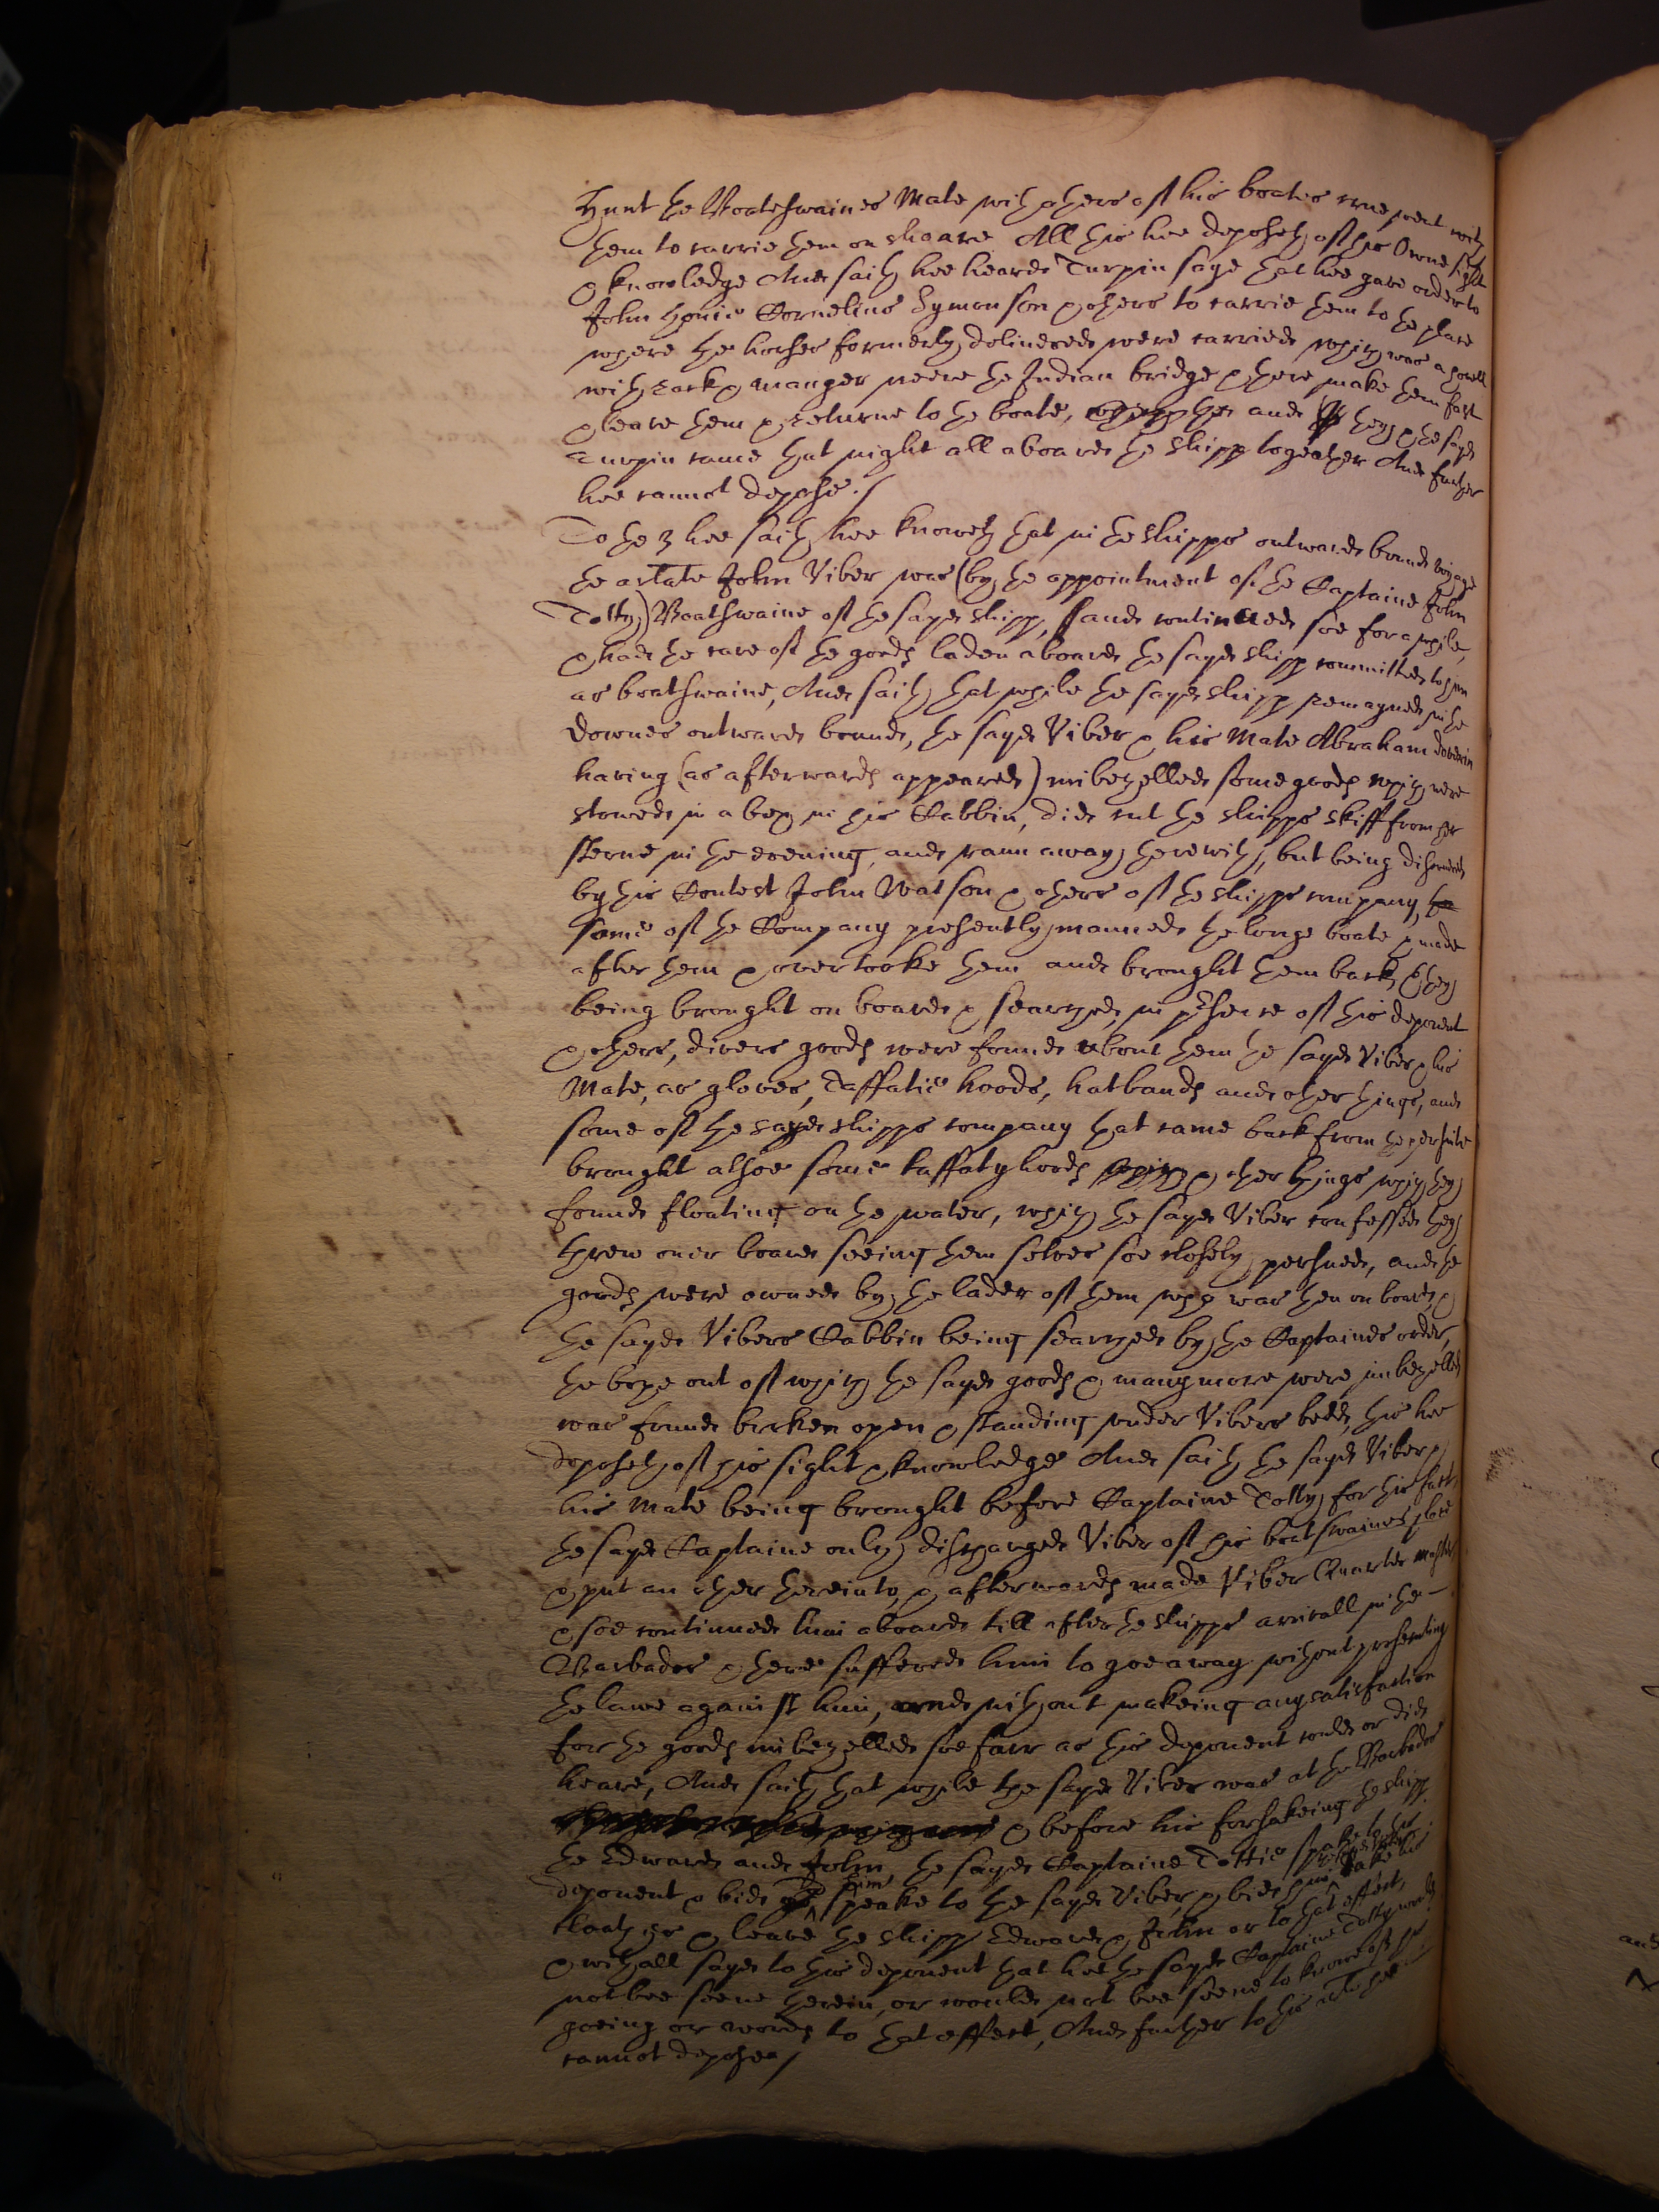 Hunt the Boateswaines Mate with others of his boates crue went with
them to carrie them on shoare All this hee deposeth of his owne sight
& knowledge And saith hee heard Turpin saye that hee gave order to
John Cornelius Symonson & others to carrie them to the place
where the horses formerly delivered were carried which was a
with rack & manger neere the Indian bridge & there make them fast
& leave them & returne to the boate, and they & the sayd
Turpin came that night all aboard the shipp together And further
hee cannot depose./
To the 3 hee saith hee knoweth that in the shipps outward bound voyage
the arlate John Viber was (by the appointment of the Captaine John
Totty) Boatswaine of the sayd shipp, and continued soe for a while,
& had the care of the goods laden aboard the sayd shipp committed to him
as boatswaine, And saith that while the sayd shipp remayned in the
Downes outward bound, the sayd Viber & his Mate Abraham
having (as afterwards appeared) imbezelled some goods which were
stowed in a box in his Cabbin, did cut the shipps skiff from her
sterne in the evening, and rann away therewith, but being discovered
by his Contest John Watson & others of the shipps company,
some of the Company presently manned the longe boate & made
after them & overtooke them and brought them back, & they
being brought on board & searched in presence of this deponent
& others, divers goods were found about them the sayd Viber & his
Mate, as gloves, Taffatie hoods, hatbands and other things, and
some of the sayd shipps company that came back from the persuite
brought alsoe some taffaty hoods & other things which they
found floating on the water, which the sayd Viber confessed they
threw over board seeing them selves soe closely persued, and the
goods were owned by the lader of them who was then on board, &
the sayd Vibers Cabbin being searched by the Captaines order,
the boxe out of which the sayd goods & many more were imbezelled
was found broken open & standing under Vibers bedd, this hee
deposeth of his sight & knowledge And saith the sayd Viber &
his Mate being brought before Captaine Totty for this fact,
the sayd Captaine only discharged Viber of his boatswaines place
& put an other thereinto, & afterwards made Viber Quarter Master
& soe continued him aboard till after the shipps arrivall in the
Barbados & there suffered him to goe away without prosecuting
the lawe against him, and without makeing any satisfaction
for the goods imbezelled soe farr as this deponent could or did
heare, And saith that while the sayd Viber was at the Barbados
& before his forsakeing the shipp
the Edward and John, the sayd Captaine Tottie spake to this
deponent & bid him speake to the sayd Viber, & bid him take his
cloathes & leave the shipp Edward & John or to that effect,
& withall sayd to this deponent that hee the sayd Captaine Totty would
not bee seene therein, or would not bee seene to knowe of his
goeing or words to that effect, And further to this hee
cannot depose./